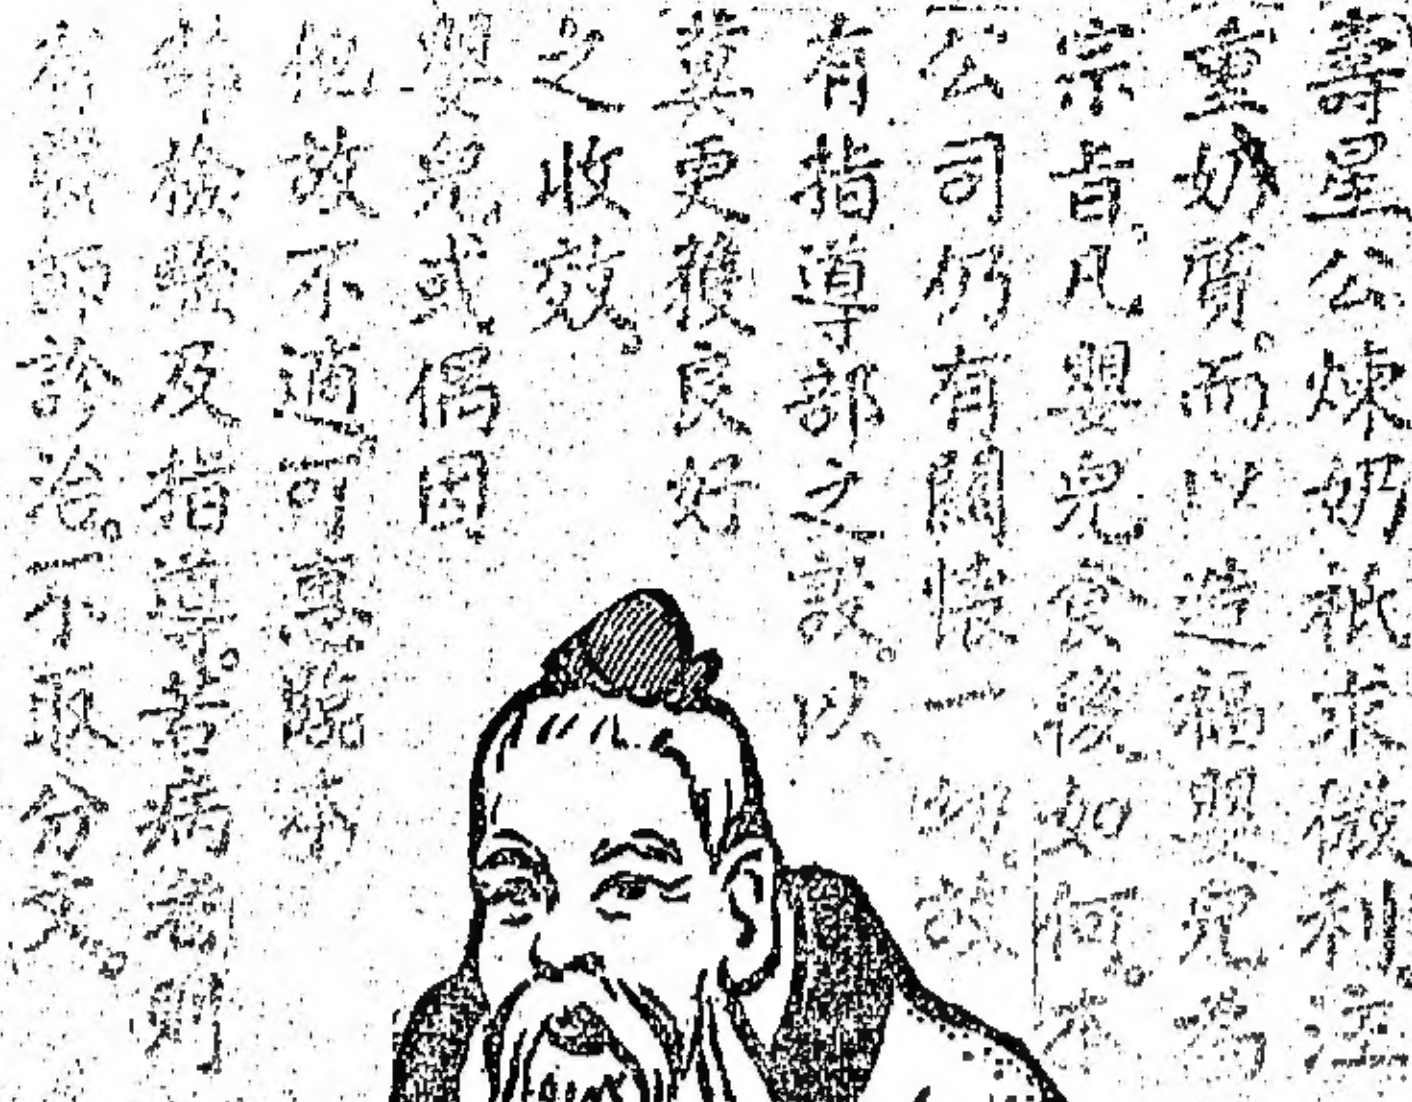 壽星公煉奶祇求微利注
重奶質。而以造福嬰兒為
宗旨。凡嬰兒食後。如何。本
公司仍有關懷一切。故
有指導部之設。以
冀更獲良好
之收效。
嬰兒。或偶因
他故不適。可惠臨本
部檢驗及指導。若病者可
有醫師診治。不取分文。